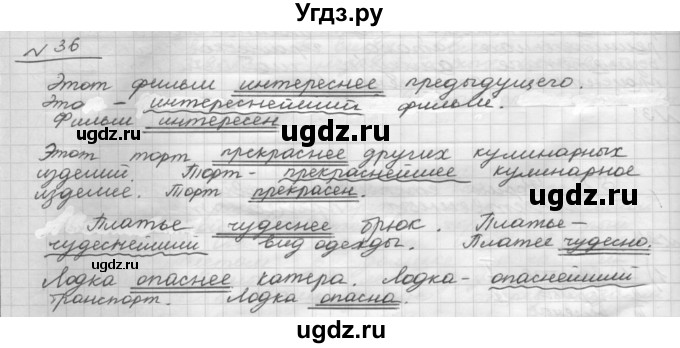 Угдз.ру
№ 36
Этот фильм интереснее предыдущего.
Это - интереснейший фильм.
Фильм интересен
ugdz.ru ugdz.ru
Этот торт прекраснее других кулинарных
изделий. Торт - прекраснейшее кулинарное
изделие. Торт прекрасен.
ugdz.ru ugdz.ru
Платье чудеснее брюк. Платье -
чудеснейший вид одежды. Платее чудесно.
ugdz.ru ugdz.ru
Лодка опаснее катера. Лодка - опаснейший
транспорт. Лодка опасна.
ugdz.ru